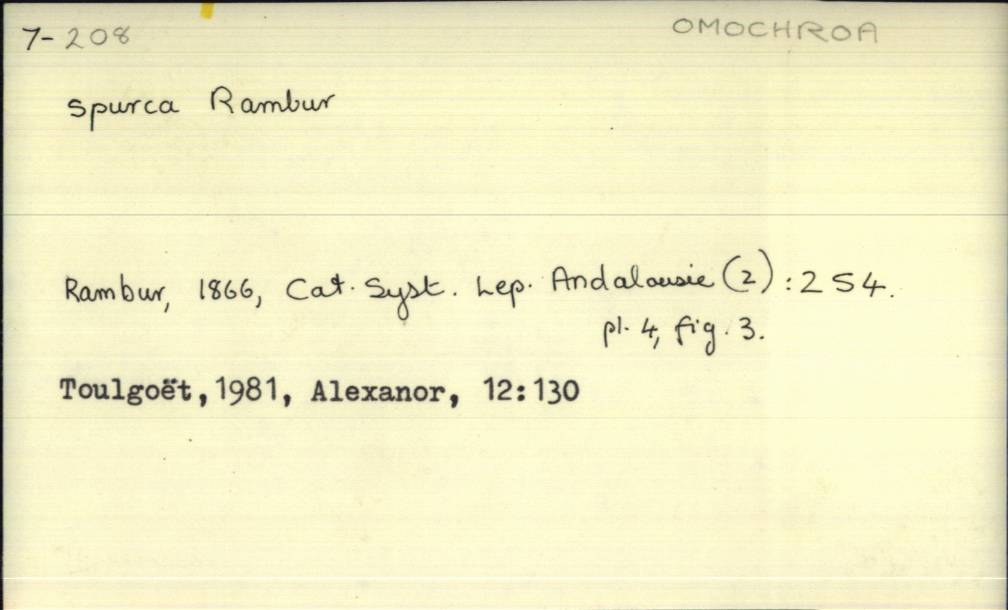 7-208 OMOCHROA
spurca Rambur
Rambur, 1866, Cat. Syst. Lep. Andalousie (2) : 254.
pl. 4, fig. 3.
Toulgoët, 1981, Alexanor, 12:130